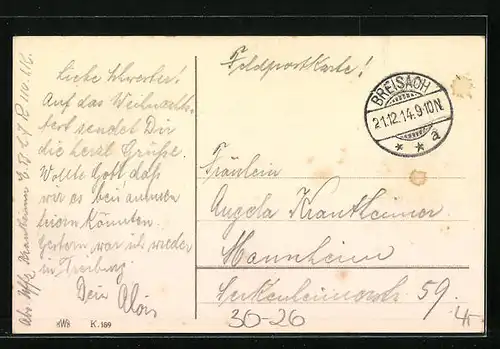 Liebe Schwester!
Auf das Weihnachts-
fest sendet Dir
die herzl Grüße.
Wollte Gott daß
wir es bei
feiern könnten.
Gestern war ich wieder
in Freiburg.
Dein Alois
Abs.
HWB K.169
Feldpostkarte!
BREISACH
21.12.14.9-10N.
* * a
Fräulein
Angela Krautheimer
Mannheim
Seckenheimerstr 59.
30-20